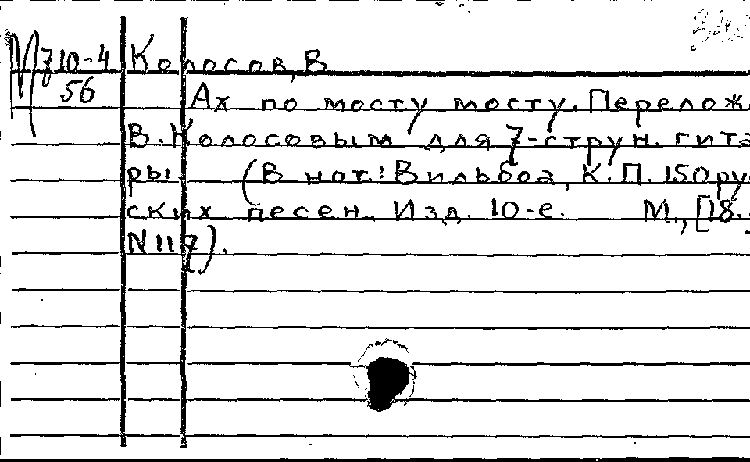 М 710-4 Колосов, В
56
Ах по мосту мосту. Перелож.
В. Колосовым для 7-струн. гита
ры. (В нот: Вильбоа, К. П. 150 ру
ских песен. Изд. 10-е. М., [18.
N 117).